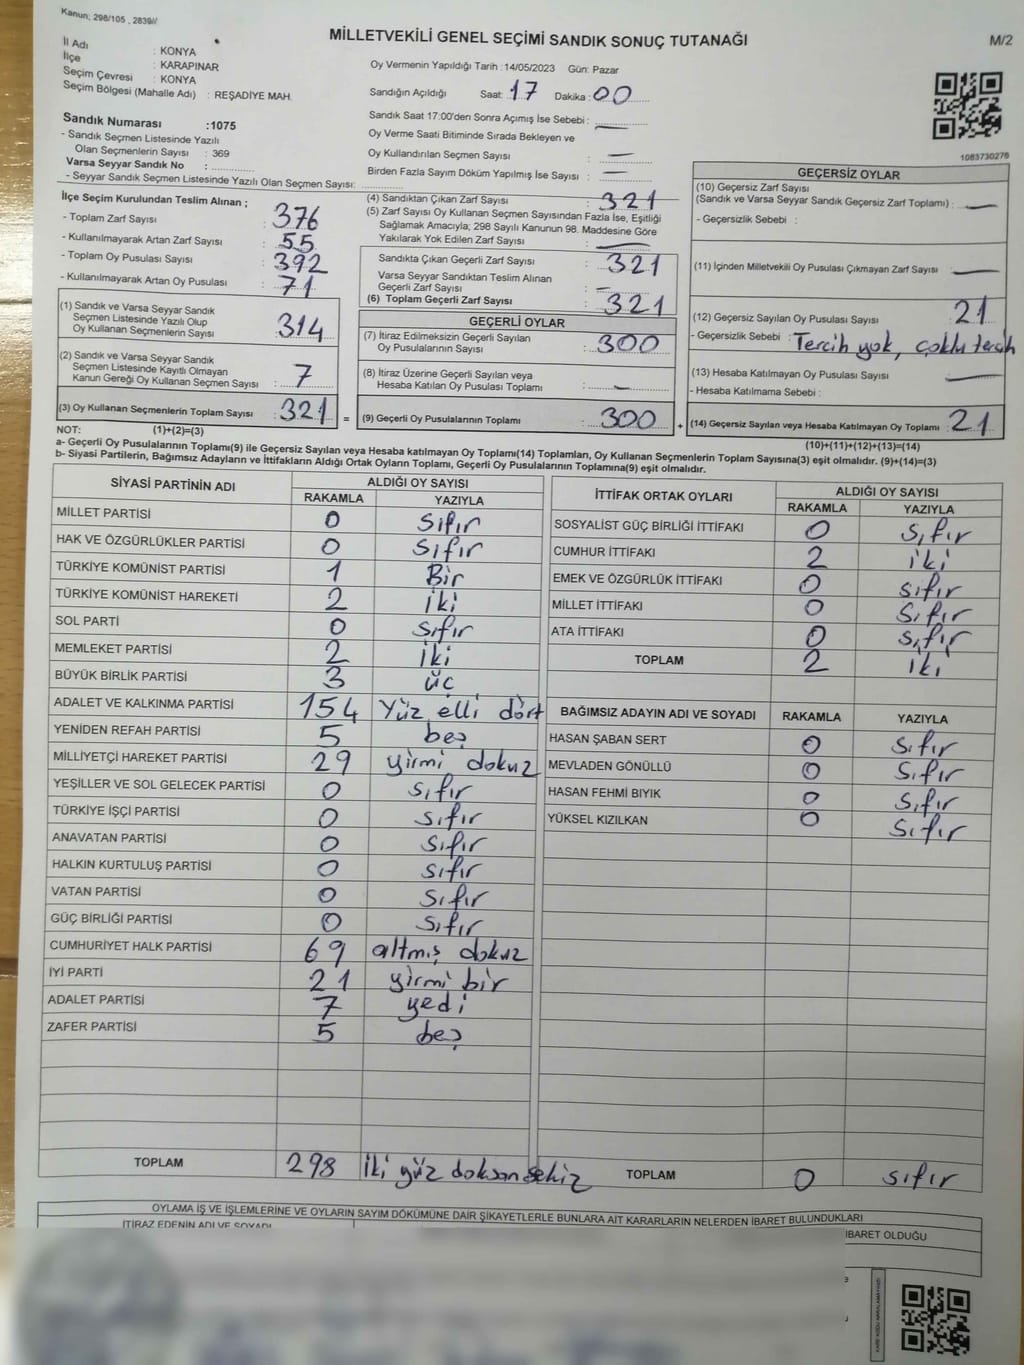 Kanun; 298/105 , 2839//
MİLLETVEKİLİ GENEL SEÇİMİ SANDIK SONUÇ TUTANAĞI
M/2
İl Adı : KONYA
İlçe : KARAPINAR
Seçim Çevresi : KONYA
Seçim Bölgesi (Mahalle Adı) : REŞADİYE MAH.
Oy Vermenin Yapıldığı Tarih :14/05/2023 Gün: Pazar
Sandığın Açıldığı Saat: 17 Dakika: 00
Sandık Saat 17:00'den Sonra Açımış İse Sebebi : —
Oy Verme Saati Bitiminde Sırada Bekleyen ve
Oy Kullandırılan Seçmen Sayısı : —
Birden Fazla Sayım Döküm Yapılmış İse Sayısı : —
1083730276
Sandık Numarası :1075
- Sandık Seçmen Listesinde Yazılı
Olan Seçmenlerin Sayısı : 369
Varsa Seyyar Sandık No :
- Seyyar Sandık Seçmen Listesinde Yazılı Olan Seçmen Sayısı:
İlçe Seçim Kurulundan Teslim Alınan ;
- Toplam Zarf Sayısı : 376
- Kullanılmayarak Artan Zarf Sayısı : 55
- Toplam Oy Pusulası Sayısı : 392
- Kullanılmayarak Artan Oy Pusulası : 71
(1) Sandık ve Varsa Seyyar Sandık
Seçmen Listesinde Yazılı Olup
Oy Kullanan Seçmenlerin Sayısı : 314
(2) Sandık ve Varsa Seyyar Sandık
Seçmen Listesinde Kayıtlı Olmayan
Kanun Gereği Oy Kullanan Seçmen Sayısı : 7
(3) Oy Kullanan Seçmenlerin Toplam Sayısı : 321 =
(4) Sandıktan Çıkan Zarf Sayısı : 321
(5) Zarf Sayısı Oy Kullanan Seçmen Sayısından Fazla İse, Eşitliği
Sağlamak Amacıyla; 298 Sayılı Kanunun 98. Maddesine Göre
Yakılarak Yok Edilen Zarf Sayısı : —
Sandıkta Çıkan Geçerli Zarf Sayısı : 321
Varsa Seyyar Sandıktan Teslim Alınan
Geçerli Zarf Sayısı : —
(6) Toplam Geçerli Zarf Sayısı : 321
GEÇERLİ OYLAR
(7) İtiraz Edilmeksizin Geçerli Sayılan
Oy Pusulalarının Sayısı : 300
(8) İtiraz Üzerine Geçerli Sayılan veya
Hesaba Katılan Oy Pusulası Toplamı : —
(9) Geçerli Oy Pusulalarının Toplamı : 300 +
GEÇERSİZ OYLAR
(10) Geçersiz Zarf Sayısı
(Sandık ve Varsa Seyyar Sandık Geçersiz Zarf Toplamı) : —
- Geçersizlik Sebebi :
(11) İçinden Milletvekili Oy Pusulası Çıkmayan Zarf Sayısı : —
(12) Geçersiz Sayılan Oy Pusulası Sayısı : 21
- Geçersizlik Sebebi : Tercih yok, çoklu tercih
(13) Hesaba Katılmayan Oy Pusulası Sayısı : —
- Hesaba Katılmama Sebebi :
(14) Geçersiz Sayılan veya Hesaba Katılmayan Oy Toplamı : 21
NOT: (1)+(2)=(3) (10)+(11)+(12)+(13)=(14)
a- Geçerli Oy Pusulalarının Toplamı(9) ile Geçersiz Sayılan veya Hesaba katılmayan Oy Toplamı(14) Toplamları, Oy Kullanan Seçmenlerin Toplam Sayısına(3) eşit olmalıdır. (9)+(14)=(3)
b- Siyasi Partilerin, Bağımsız Adayların ve İttifakların Aldığı Ortak Oyların Toplamı, Geçerli Oy Pusulalarının Toplamına(9) eşit olmalıdır.
SİYASİ PARTİNİN ADI ALDIĞI OY SAYISI
RAKAMLA YAZIYLA
MİLLET PARTİSİ 0 sıfır
HAK VE ÖZGÜRLÜKLER PARTİSİ 0 sıfır
TÜRKİYE KOMÜNİST PARTİSİ 1 Bir
TÜRKİYE KOMÜNİST HAREKETİ 2 iki
SOL PARTİ 0 sıfır
MEMLEKET PARTİSİ 2 iki
BÜYÜK BİRLİK PARTİSİ 3 üç
ADALET VE KALKINMA PARTİSİ 154 Yüz elli dört
YENİDEN REFAH PARTİSİ 5 beş
MİLLİYETÇİ HAREKET PARTİSİ 29 yirmi dokuz
YEŞİLLER VE SOL GELECEK PARTİSİ 0 sıfır
TÜRKİYE İŞÇİ PARTİSİ 0 sıfır
ANAVATAN PARTİSİ 0 sıfır
HALKIN KURTULUŞ PARTİSİ 0 sıfır
VATAN PARTİSİ 0 sıfır
GÜÇ BİRLİĞİ PARTİSİ 0 sıfır
CUMHURİYET HALK PARTİSİ 69 altmış dokuz
İYİ PARTİ 21 yirmi bir
ADALET PARTİSİ 7 yedi
ZAFER PARTİSİ 5 beş
TOPLAM 298 iki yüz doksan sekiz
İTTİFAK ORTAK OYLARI ALDIĞI OY SAYISI
RAKAMLA YAZIYLA
SOSYALİST GÜÇ BİRLİĞİ İTTİFAKI 0 sıfır
CUMHUR İTTİFAKI 2 iki
EMEK VE ÖZGÜRLÜK İTTİFAKI 0 sıfır
MİLLET İTTİFAKI 0 sıfır
ATA İTTİFAKI 0 sıfır
TOPLAM 2 iki
BAĞIMSIZ ADAYIN ADI VE SOYADI RAKAMLA YAZIYLA
HASAN ŞABAN SERT 0 sıfır
MEVLADEN GÖNÜLLÜ 0 sıfır
HASAN FEHMİ BIYIK 0 sıfır
YÜKSEL KIZILKAN 0 sıfır
TOPLAM 0 sıfır
OYLAMA İŞ VE İŞLEMLERİNE VE OYLARIN SAYIM DÖKÜMÜNE DAİR ŞİKAYETLERLE BUNLARA AİT KARARLARIN NELERDEN İBARET BULUNDUKLARI
İTİRAZ EDENİN ADI VE SOYADI
İBARET OLDUĞU